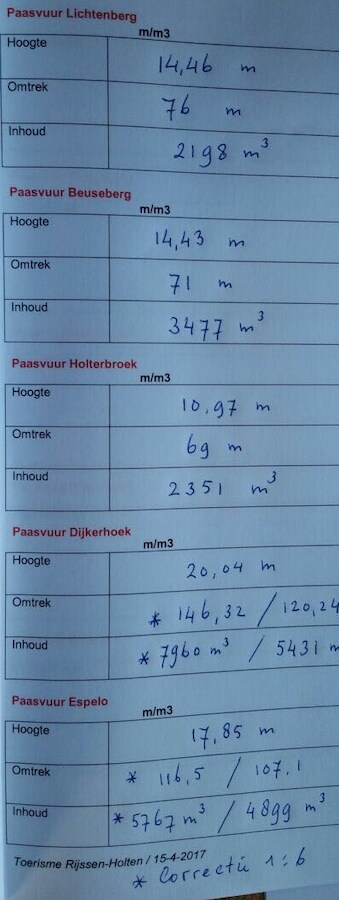 Paasvuur Lichtenberg
m/m3
Hoogte 14,46 m
Omtrek 76 m
Inhoud 2198 m³
Paasvuur Beuseberg
m/m3
Hoogte 14,43 m
Omtrek 71 m
Inhoud 3477 m³
Paasvuur Holterbroek
m/m3
Hoogte 10,97 m
Omtrek 69 m
Inhoud 2351 m³
Paasvuur Dijkerhoek
m/m3
Hoogte 20,04 m
Omtrek * 146,32 / 120,24
Inhoud * 7960 m³ / 5431 m
Paasvuur Espelo
m/m3
Hoogte 17,85 m
Omtrek * 116,5 / 107.1
Inhoud * 5767 m³ / 4899 m³
Toerisme Rijssen-Holten / 15-4-2017
* Correctie 1:6